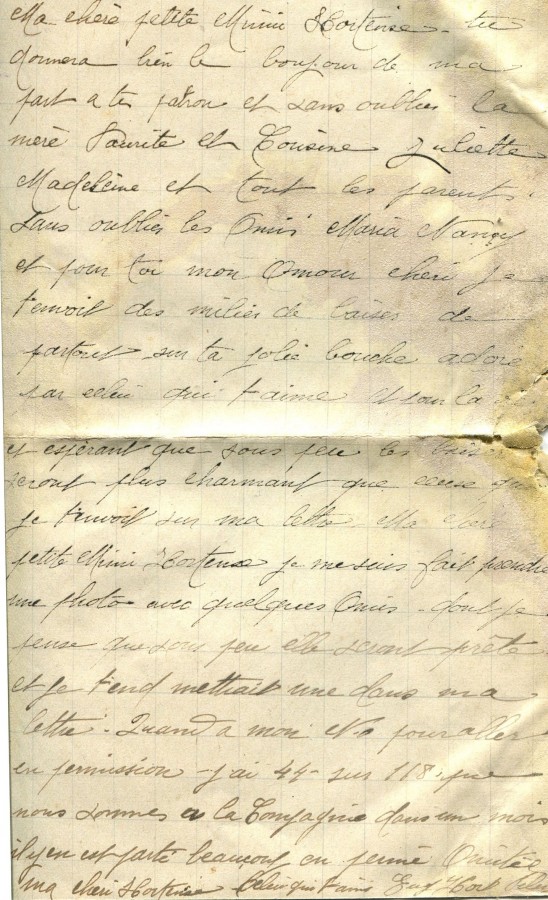 Ma chère petite Mimi Hortense - tu
donnera bien le bonjour de ma
part a tes patron et sans oublier la
mère et Cousine Juliette
Madeleine et tout les parents.
Sans oublier les Amis Maria Nancy
et pour toi mon Amour cheri je
t'envoit des milier de baiser de
partout sur ta jolie bouche adoré
par celui qui t'aime et pour la
et espérant que sous peu les baiser
seront plus charmant que ceuse que
je t'envoit sur ma lettre. Ma chère
petite Mimi Hortense je me suis fait prendre
une photo avec quelques Amis - dont je
pense que sous peu elle seront prête
et je t'end mettrait une dans ma
lettre - Quand a mon No pour aller
en permission - j'ai 44 - sur 118 que
nous sommes a la Compagnie dans un mois
il y en est parté beaucoup en
ma cheri Hortense Celui qui t'aime